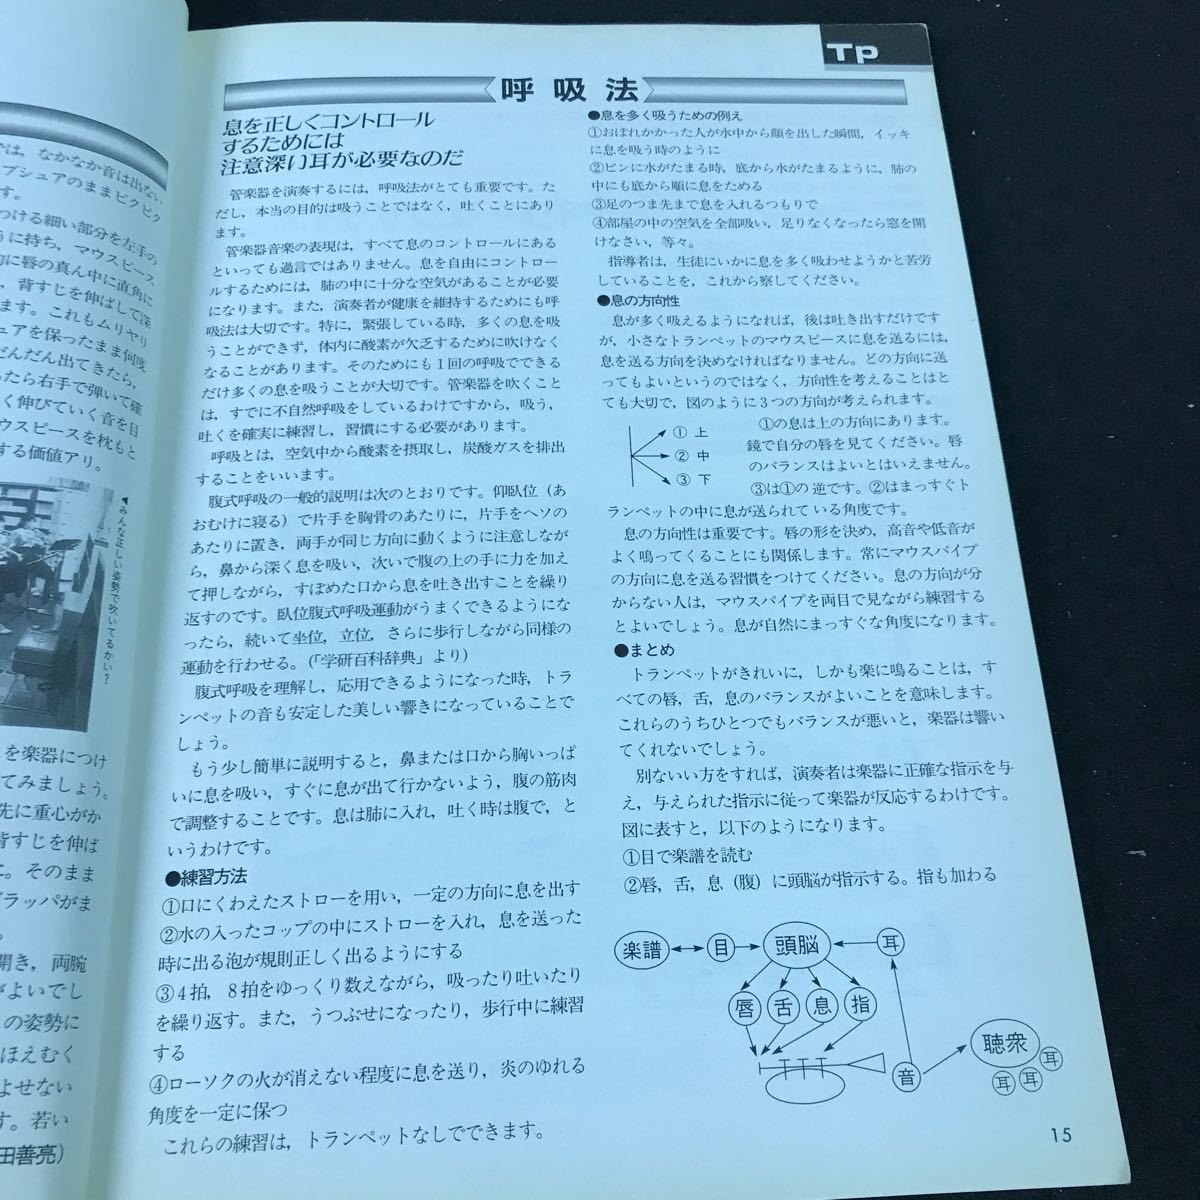 Tp
呼吸法
息を正しくコントロール
するためには
注意深い耳が必要なのだ
管楽器を演奏するには，呼吸法がとても重要です。た
だし，本当の目的は吸うことではなく，吐くことにあり
ます。
管楽器音楽の表現は，すべて息のコントロールにある
といっても過言ではありません。息を自由にコントロー
ルするためには，肺の中に十分な空気があることが必要
になります。また，演奏者が健康を維持するためにも呼
吸法は大切です。特に，緊張している時，多くの息を吸
うことができず，体内に酸素が欠乏するために吹けなく
なることがあります。そのためにも1回の呼吸でできる
だけ多くの息を吸うことが大切です。管楽器を吹くこと
は，すでに不自然呼吸をしているわけですから，吸う，
吐くを確実に練習し，習慣にする必要があります。
呼吸とは，空気中から酸素を摂取し，炭酸ガスを排出
することをいいます。
腹式呼吸の一般的説明は次のとおりです。仰臥位（あ
おむけに寝る）で片手を胸骨のあたりに，片手をヘソの
あたりに置き，両手が同じ方向に動くように注意しなが
ら，鼻から深く息を吸い，次いで腹の上の手に力を加え
て押しながら，すぼめた口から息を吐き出すことを繰り
返すのです。臥位腹式呼吸運動がうまくできるようにな
ったら，続いて坐位，立位，さらに歩行しながら同様の
運動を行わせる。(「学研百科辞典」より)
腹式呼吸を理解し，応用できるようになった時，トラ
ンペットの音も安定した美しい響きになっていることで
しょう。
もう少し簡単に説明すると，鼻または口から胸いっぱ
いに息を吸い，すぐに息が出て行かないよう，腹の筋肉
で調整することです。息は肺に入れ，吐く時は腹で，と
いうわけです。
●練習方法
①口にくわえたストローを用い，一定の方向に息を出す
②水の入ったコップの中にストローを入れ，息を送った
時に出る泡が規則正しく出るようにする
③4拍，8拍をゆっくり数えながら，吸ったり吐いたり
を繰り返す。また，うつぶせになったり，歩行中に練習
する
④ローソクの火が消えない程度に息を送り，炎のゆれる
角度を一定に保つ
これらの練習は，トランペットなしでできます。
●息を多く吸うための例え
①おぼれかかった人が水中から顔を出した瞬間，イッキ
に息を吸う時のように
②ビンに水がたまる時，底から水がたまるように，肺の
中にも底から順に息をためる
③足のつま先まで息を入れるつもりで
④部屋の中の空気を全部吸い，足りなくなったら窓を開
けなさい，等々。
指導者は，生徒にいかに息を多く吸わせようかと苦労
していることを，これから察してください。
●息の方向性
息が多く吸えるようになれば，後は吐き出すだけです
が，小さなトランペットのマウスピースに息を送るには，
息を送る方向を決めなければなりません。どの方向に送
ってもよいというのではなく，方向性を考えることはと
ても大切で，図のように3つの方向が考えられます。
①上
②中
③下
①の息は上の方向にあります。
鏡で自分の唇を見てください。唇
のバランスはよいとはいえません。
③は①の逆です。②はまっすぐト
ランペットの中に息が送られている角度です。
息の方向性は重要です。唇の形を決め，高音や低音が
よく鳴ってくることにも関係します。常にマウスパイプ
の方向に息を送る習慣をつけてください。息の方向が分
からない人は，マウスパイプを両目で見ながら練習する
とよいでしょう。息が自然にまっすぐな角度になります。
●まとめ
トランペットがきれいに，しかも楽に鳴ることは，す
べての唇，舌，息のバランスがよいことを意味します。
これらのうちひとつでもバランスが悪いと，楽器は響い
てくれないでしょう。
別ないい方をすれば，演奏者は楽器に正確な指示を与
え，与えられた指示に従って楽器が反応するわけです。
図に表すと，以下のようになります。
①目で楽譜を読む
②唇，舌，息（腹）に頭脳が指示する。指も加わる
楽譜
目
頭脳
耳
唇
舌
息
指
音
聴衆
耳
耳
耳
耳
15
では，なかなか音は出ない
プシュアのままピクピク
す。
つける細い部分を左手の
うに持ち，マウスピース
的に唇の真ん中に直角に
，背すじを伸ばして深
ます。これもムリヤリ
ュアを保ったまま何度
だんだん出てきたら，
ったら右手で弾いて確
く伸びていく音を目
ウスピースを枕もと
する価値アリ。
◀みんな正しい姿勢で吹いてるかい?
を楽器につけ
てみましょう。
先に重心がか
背すじを伸ば
こ。そのまま
ラッパがま
。
開き，両腕
がよいでし
の姿勢に
ほえむく
よせない
す。若い
田善亮)